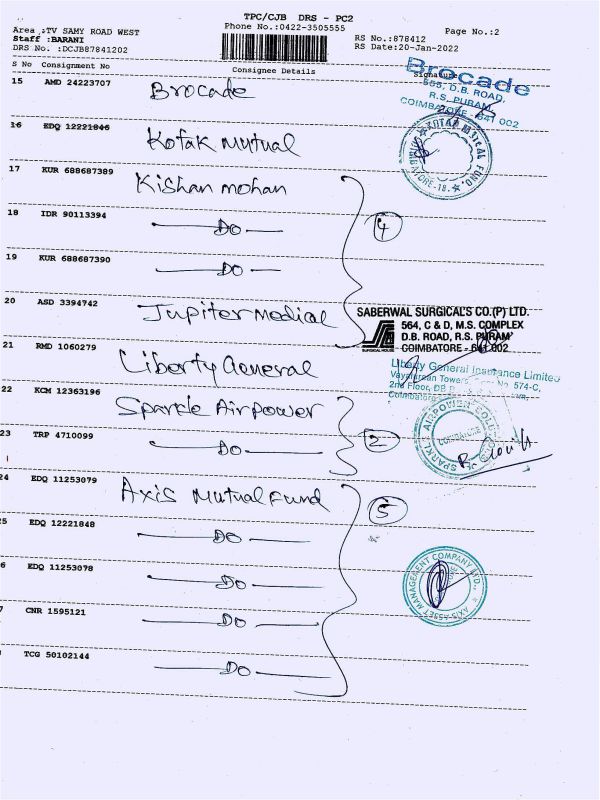 TPC/CJB DRS - PC2
Phone No.:0422-3505555
Page No.:2
Area :TV SAMY ROAD WEST
Staff :BARANI
DRS No. :DCJB87841202
RS No.:878412
RS Date:20-Jan-2022
S No Consignment No Consignee Details Signature
15 AMD 24223707 Brocade
Brocade
565, D.B. ROAD,
R.S. PURAM,
COIMBATORE - 641 002
16 EDQ 12221846 Kotak Mutual
KOTAK MUTUAL FUND
COIMBATORE-18.
17 KUR 688687389 Kishan mohan
18 IDR 90113394 DO
4
19 KUR 688687390 DO
20 ASD 3394742 Jupiter Medical
SABERWAL SURGICALS CO.(P) LTD.
564, C & D, M.S. COMPLEX
D.B. ROAD, R.S. PURAM
COIMBATORE - 641 002
SURGICAL HOUSE
21 RMD 1060279 Liberty General
Liberty General Insurance Limited
574-C,
2nd Floor, DB
Coimbatore
22 KCM 12363196 Sparkle Airpower
23 TRP 4710099 DO
2
COIMBATORE
24 EDQ 11253079 Axis Mutual Fund
5
5 EDQ 12221848 DO
6 EDQ 11253078 DO
AXIS ASSET MANAGEMENT COMPANY LTD.
7 CNR 1595121 DO
TCG 50102144 DO